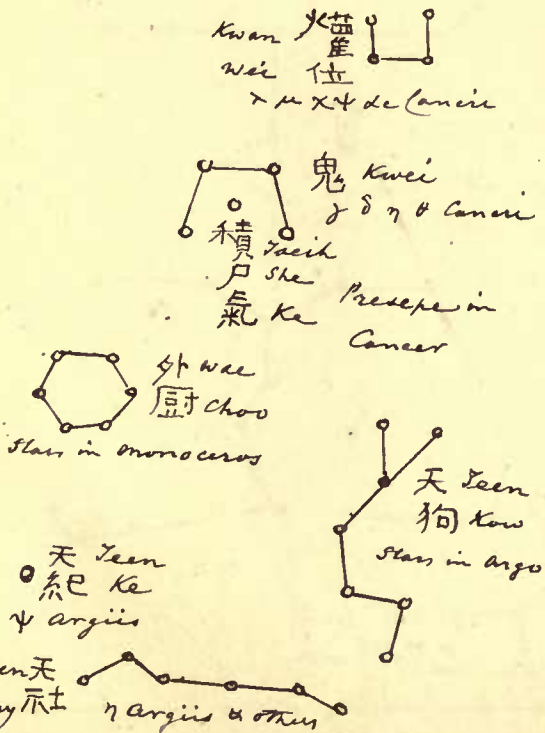 Kwan 爟
Wei 位
λ μ χ ψ de Cancri
鬼 Kwei
γ δ η θ Cancri
積 Tseih
尸 She
氣 Ke
Presepe in
Cancer
外 Wae
厨 Choo
Stars in Monoceros
天 Teen
狗 Kow
Stars in Argo
天 Teen
紀 Ke
ψ Argûs
天
社
η Argûs & others